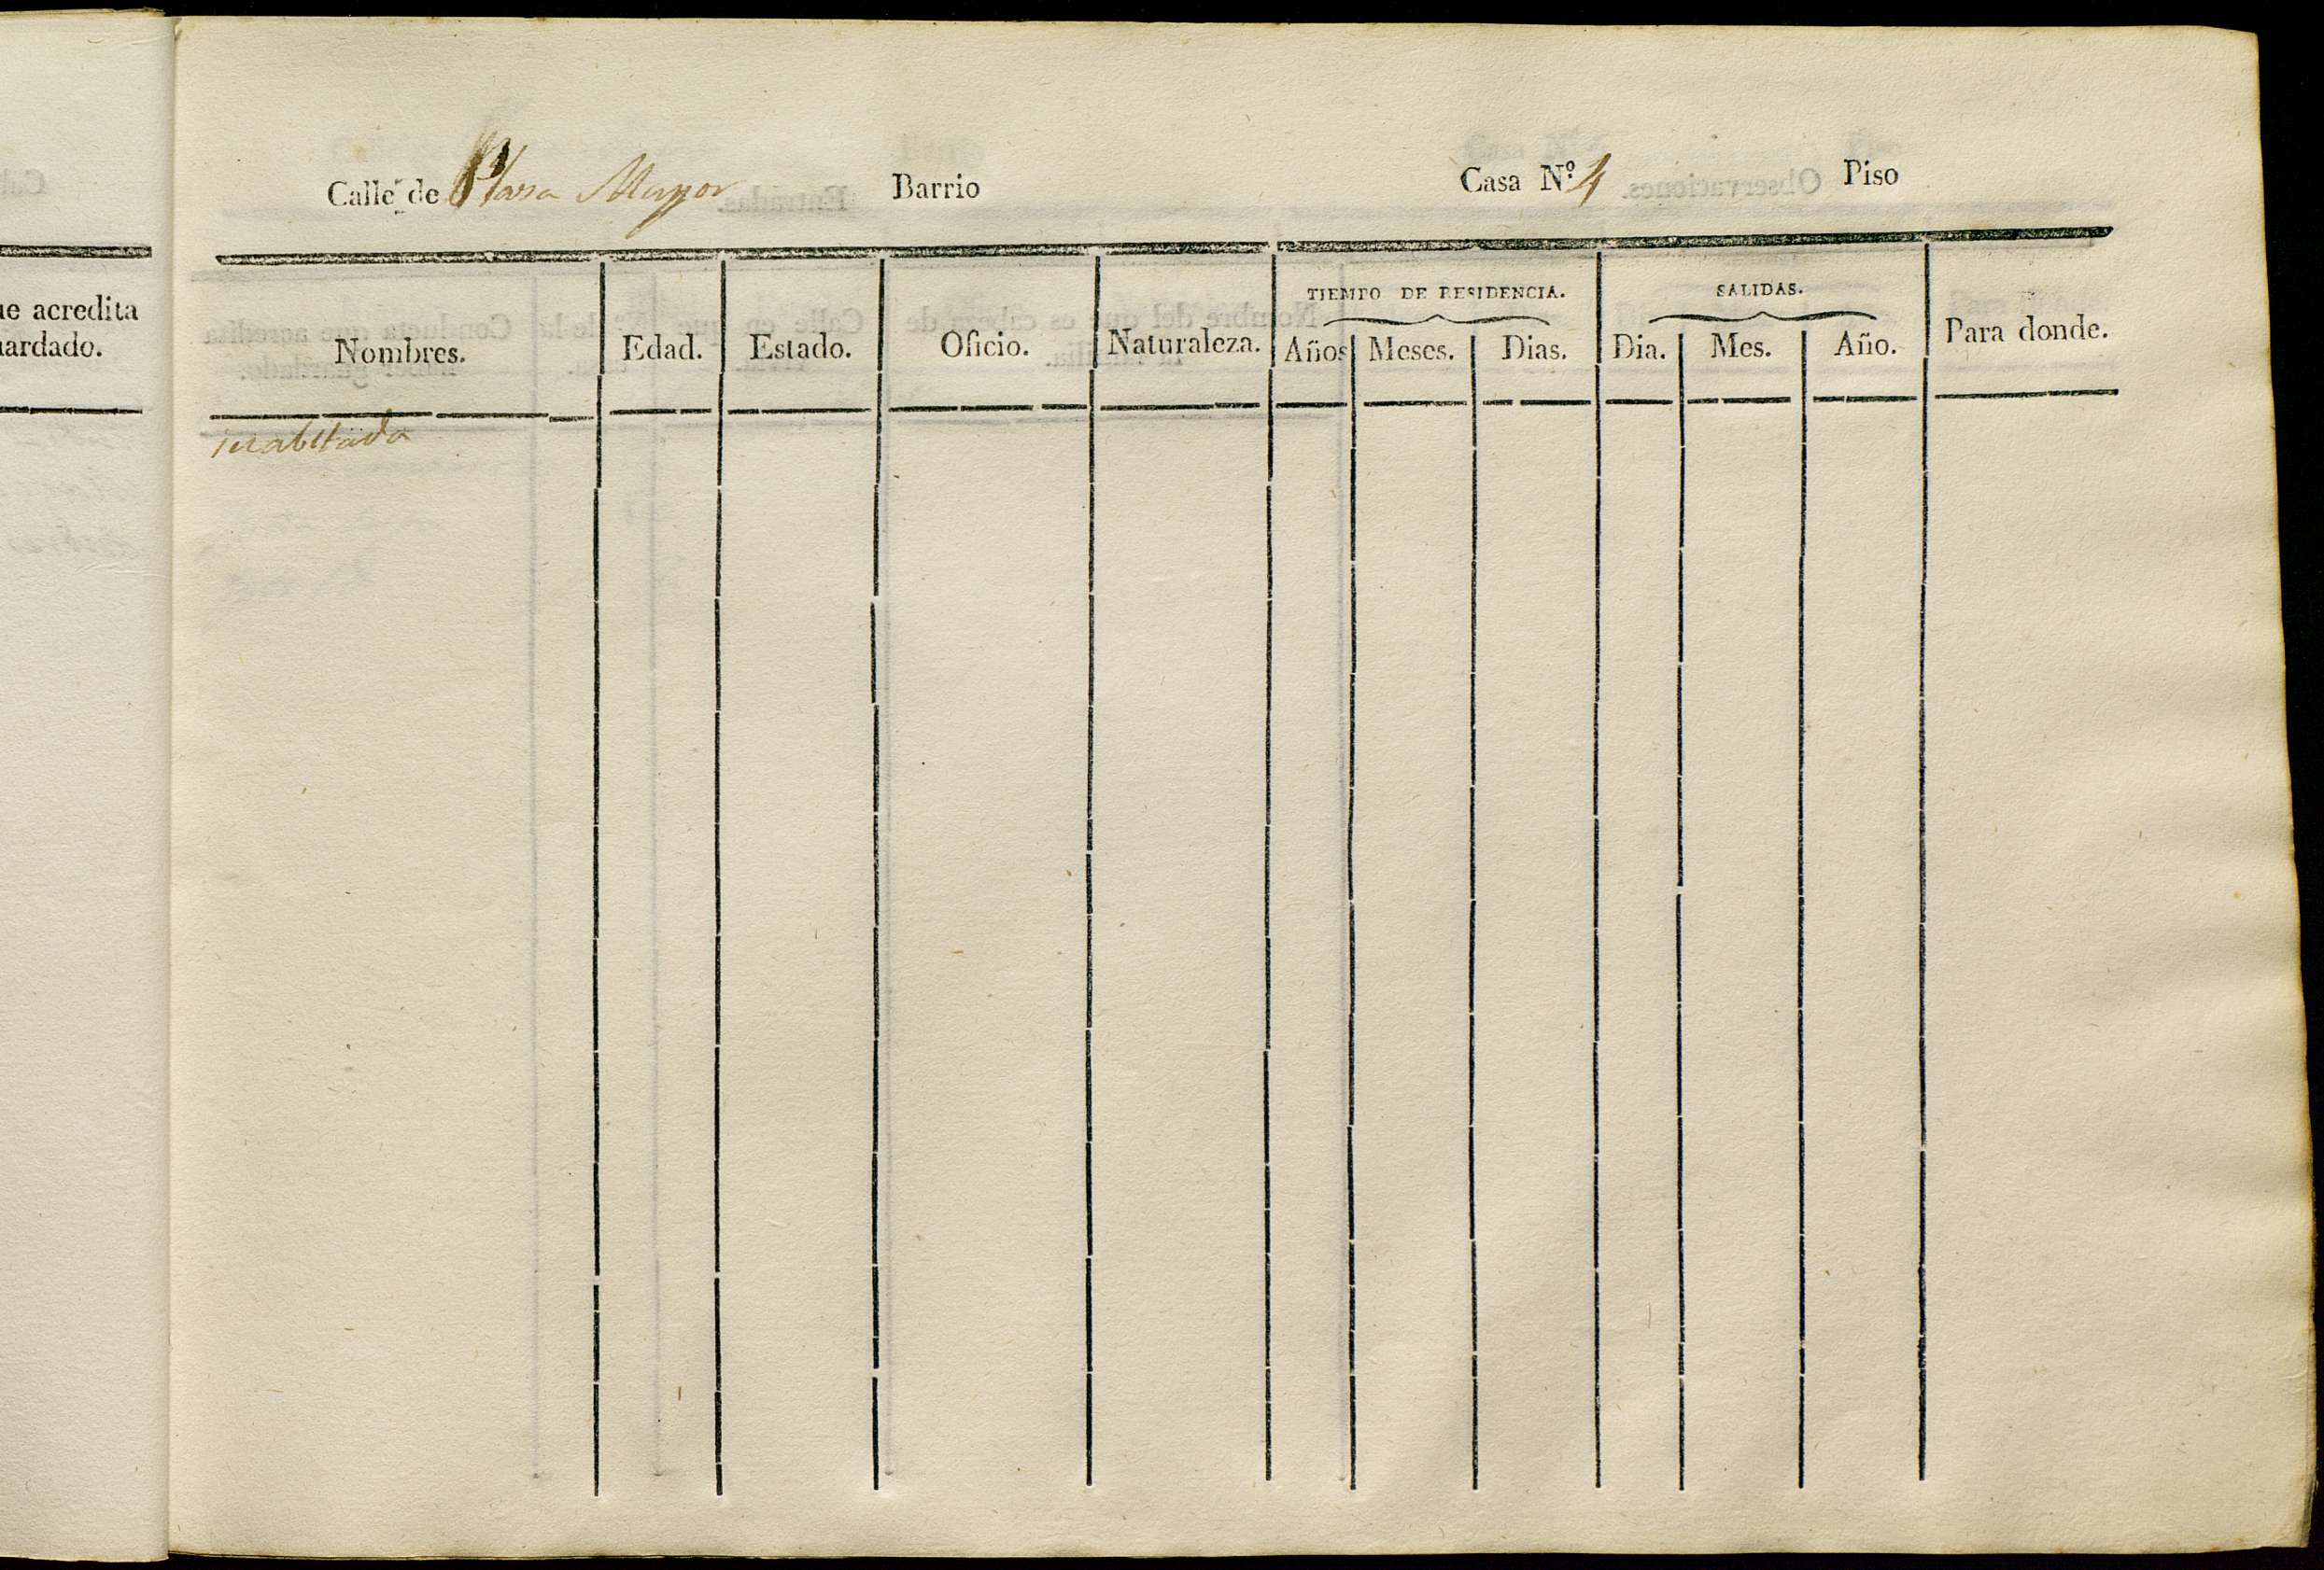 ue acredita
uardado.
Calle de Plassa Mayor Barrio Casa Nº 4 Piso
TIEMPO DE RESIDENCIA. SALIDAS.
Nombres. Edad. Estado. Oficio. Naturaleza. Años Meses. Dias. Dia. Mes. Año. Para donde.
inabitada